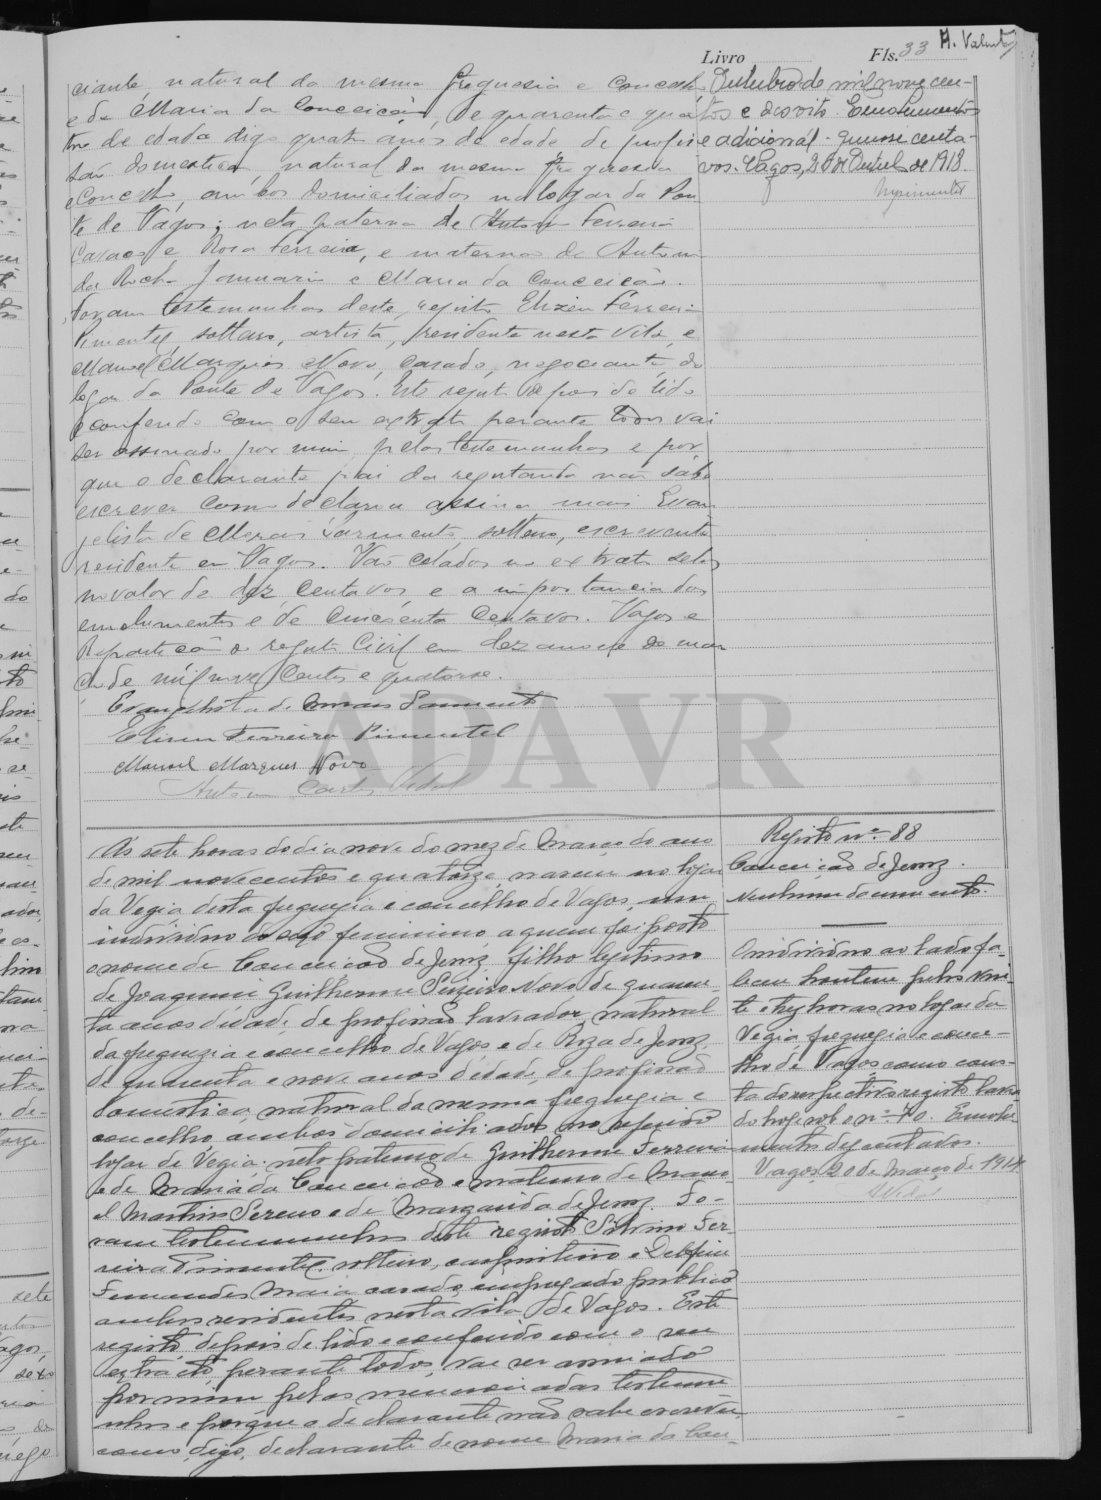 Livro Fls. 33 A. Valente
ciante, natural da mesma freguesia e concelho
e de Maria da Conceição, de quarenta e qua
tro de edade digo quatro anos de edade de profis
são domestica, natural da mesma freguesia
e concelho, ambos domiciliados no logar da Pon
te de Vagos; neta paterna de Antonio Ferreira
e Rosa Ferreira, e materna de Antonio
da Rocha Januario e Maria da Conceição.
Foram testemunhas deste registo Eliseu Ferreira
Pimentel, solteiro, artista, residente nesta vila, e
Manuel Marques Novo, casado, negociante, do
logar da Ponte de Vagos. Este registo depois de lido
e conferido com o seu extrato perante todos vai
ser assinado por mim, pelas testemunhas e por
que o declarante pai da registanda não sabe
escrever como declarou assina mais Evan
gelista de Morais Sarmento, solteiro, escrevente
residente em Vagos. Vão colados no extrato selos
no valor de dez centavos e a importancia dos
emolumentos é de cincoenta centavos. Vagos e
Repartição do registo Civil em dezanove de mar
ço de mil nove centos e quatorze.
Evangelista de Morais Sarmento
Eliseu Ferreira Pimentel
Manuel Marques Novo
Antonio Carlos Vidal
Outubro de mil nove cen-
tos e dezoito. Emolumentos
e adicional - quinse centa-
vos. Vagos, 2 de Outubro de 1918.
ADAVR
Ás sete horas do dia nove do mez de Março do ano
de mil novecentos e quatorze, nasceu no logar
da Vegia, desta freguezia e concelho de Vagos, um
individuo do sexo feminino, a quem foi posto
o nome de Conceição de Jesus, filho legitimo
de Joaquim Guilherme Novo de quaren
ta anos d'idade, de profissão lavrador, natural
da freguezia e concelho de Vagos e de Roza de Jesus
de quarenta e nove anos d'idade, de profissão
domestica, natural da mesma freguezia e
concelho, ambos domiciliados no referido
logar de Vegia: neto paterno de Guilherme Ferreira
e de Maria da Conceição e materno de Manu
el Martins Sereno e de Margarida de Jesus. Fo-
ram testemunhas deste registo Silvino Fer-
reira Pimentel, solteiro, carpinteiro e Delfim
Fernandes Maia casado, empregado publico
ambos residentes nesta vila de Vagos. Este
registo depois de lido e conferido com o seu
extracto, perante todos, vai ser assinado
por mim pelas mencionadas testemu-
nhas e porque a declarante não sabe escrever,
como, digo, declarante de nome Maria da Con-
Registo nº 88
Conceição de Jesus.
Nenhum documento.
O individuo ao lado fa-
leceu hontem pelas vin-
te e tres horas no logar da
Vegia freguezia e conce-
lho de Vagos, como cons-
ta do respectivo registo lavra-
do hoje sob o nº 40. Emolu-
mentos dez centavos.
Vagos, 20 de Março de 1914